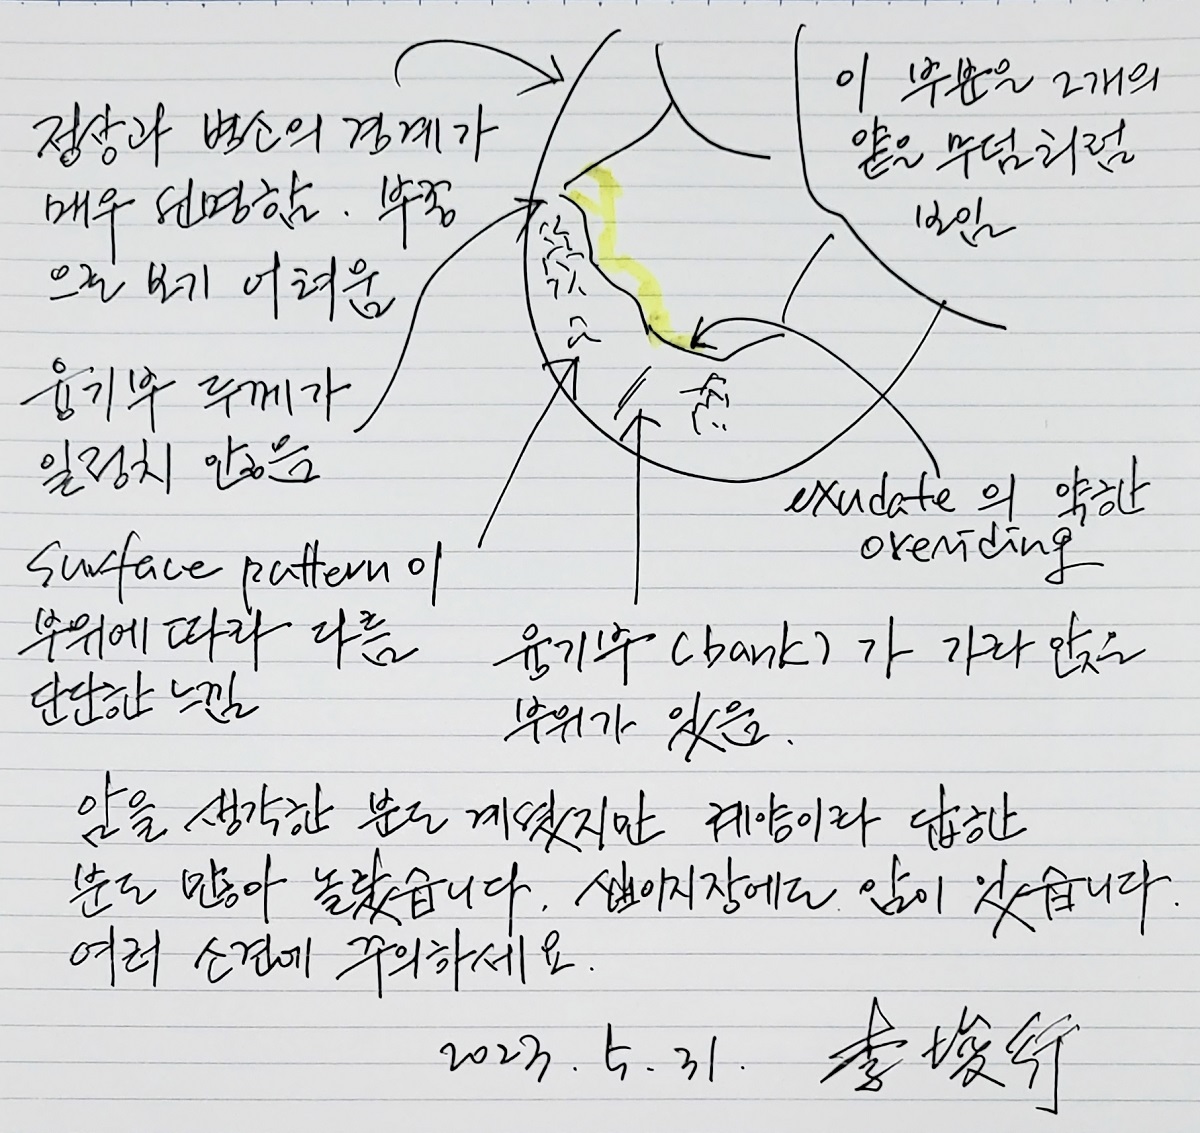 정상과 병소의 경계가
매우 선명함. 부종
으로 보기 어려움
이 부분은 2개의
얕은 무덤처럼
보임
융기부 두께가
일정치 않음
exudate의 약한
overriding
surface pattern이
부위에 따라 다름
단단한 느낌
융기부 (bank)가 가라앉은
부위가 있음.
암을 생각한 분도 계셨지만 궤양이라 답한
분도 많아 놀랐습니다. 십이지장에도 암이 있습니다.
여러 소견에 주의하세요.
2023. 5. 31. 李埈行